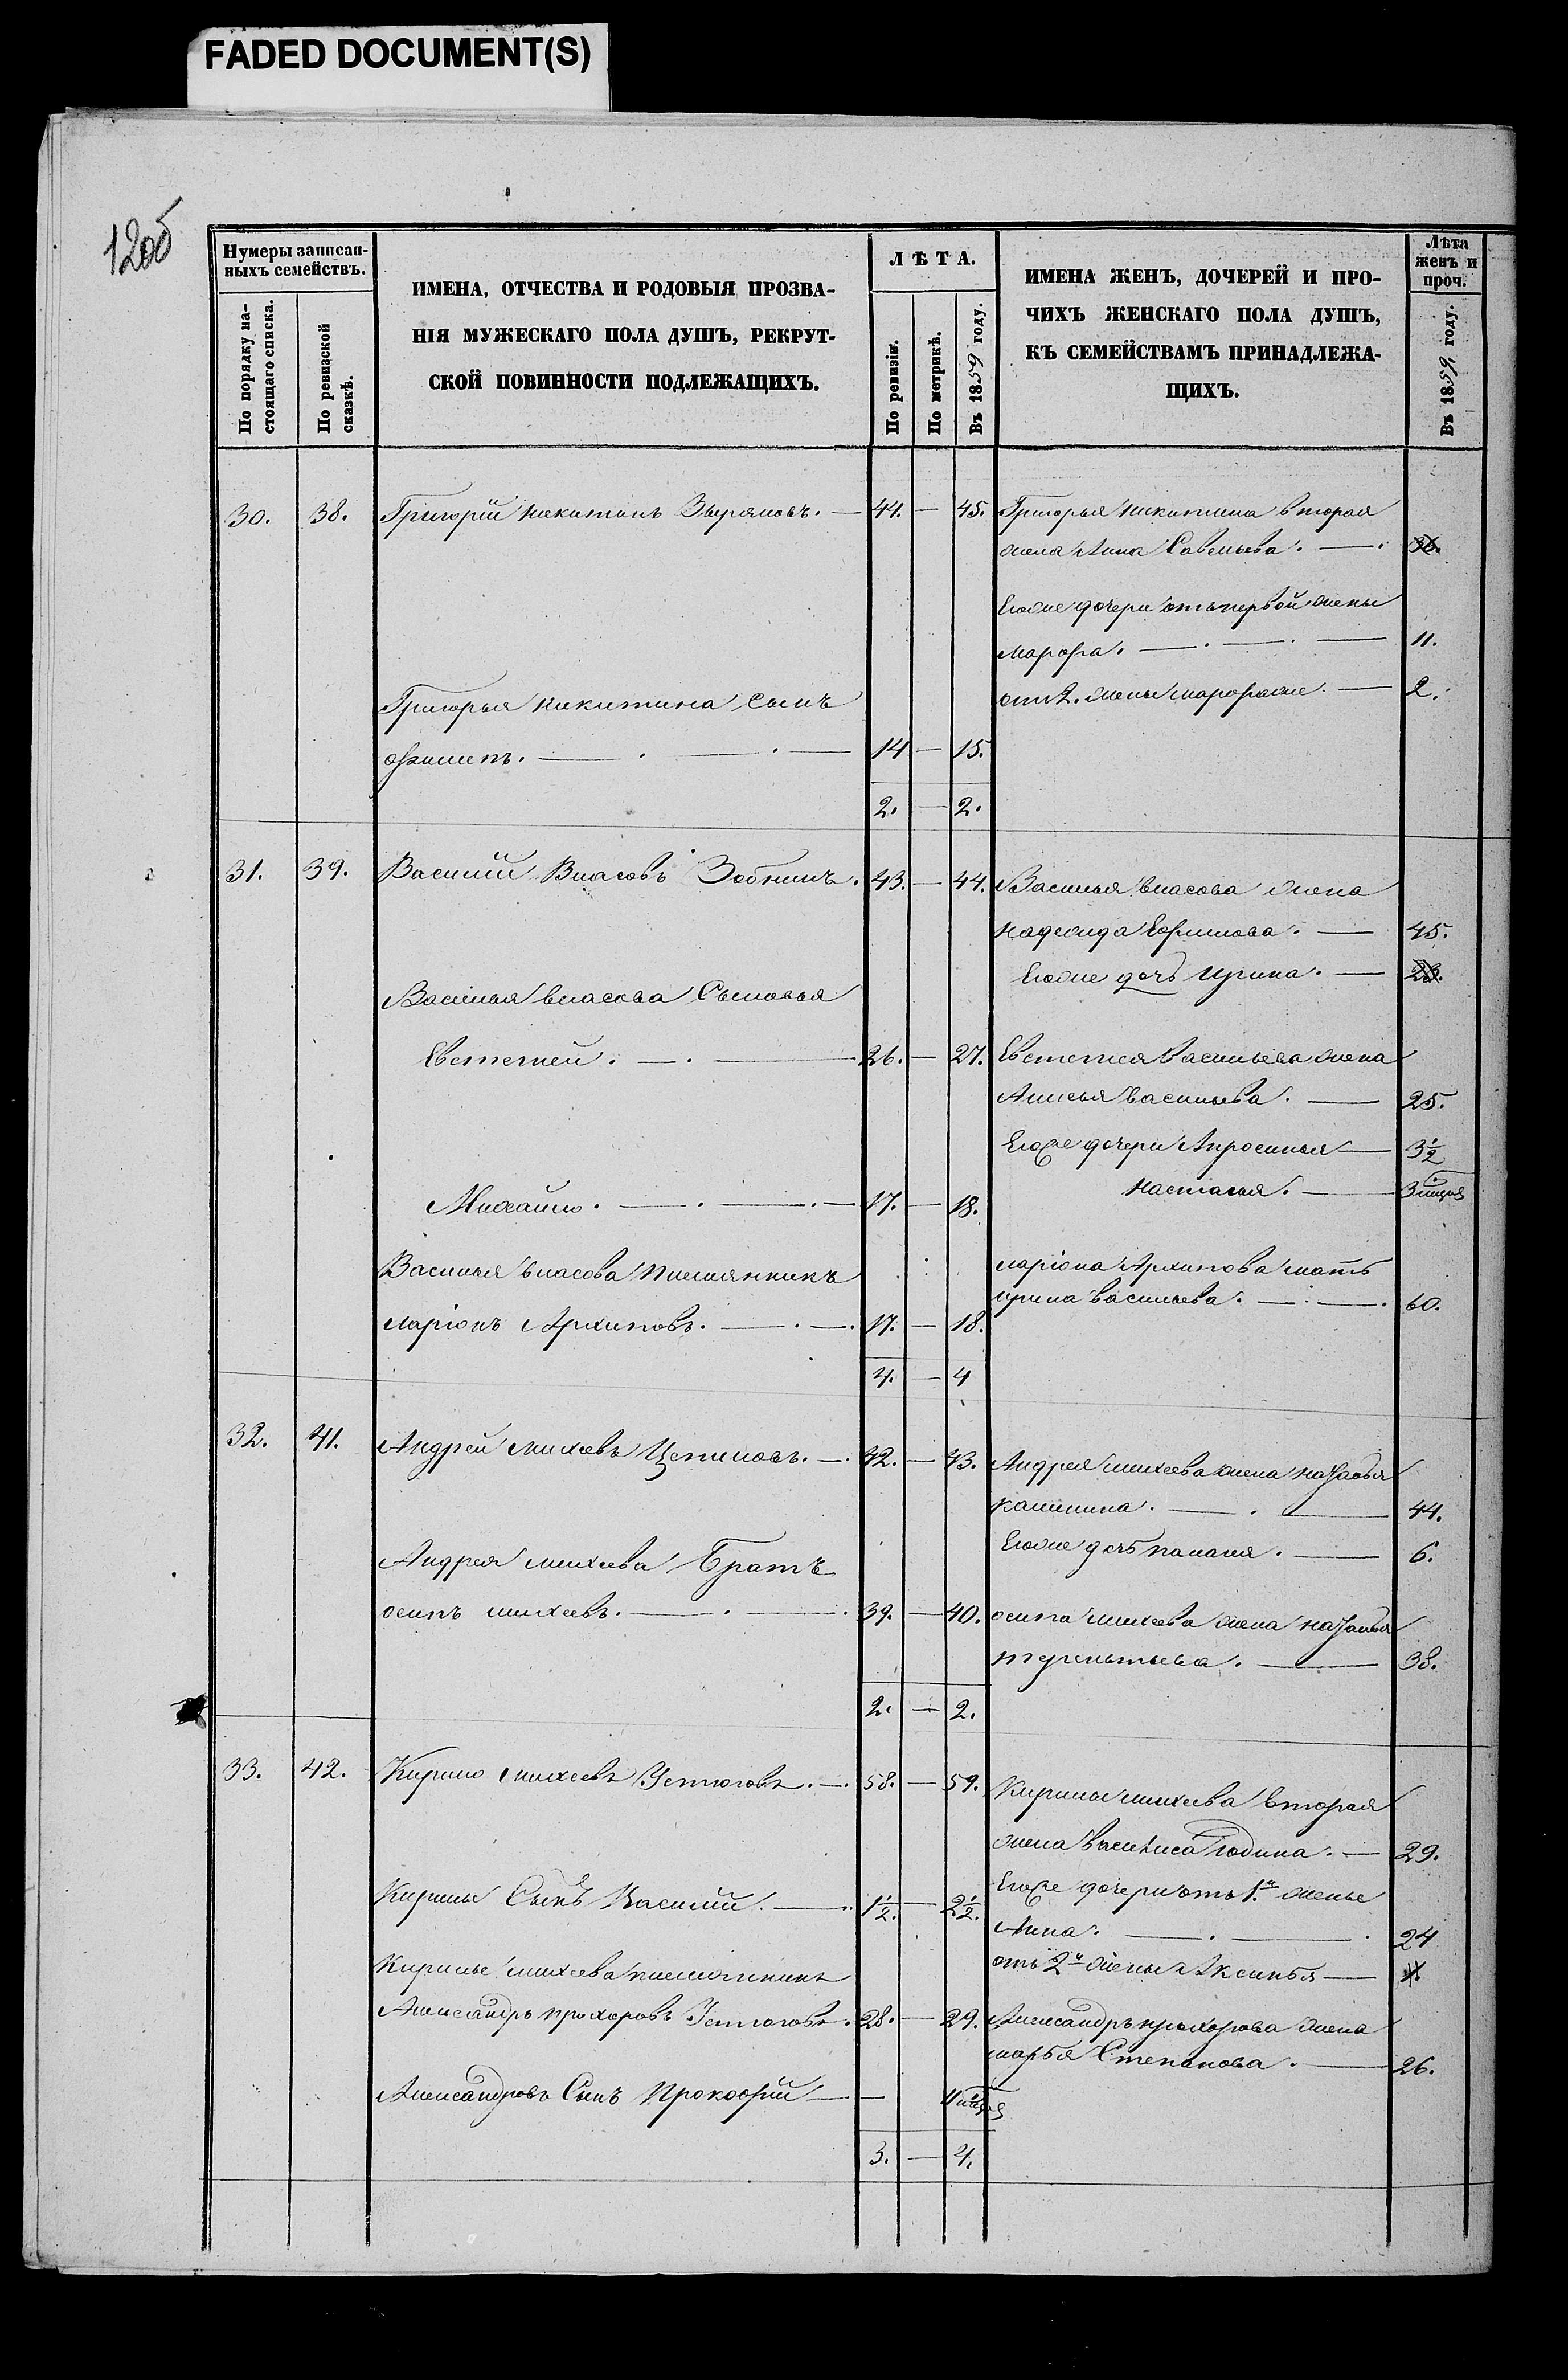 FADED DOCUMENT(S)
120об
Нумеры записан-
ныхъ семействъ.
По порядку на-
стоящаго списка.
По ревизской
сказкѣ.
ИМЕНА, ОТЧЕСТВА И РОДОВЫЯ ПРОЗВА-
НІЯ МУЖЕСКАГО ПОЛА ДУШЪ, РЕКРУТ-
СКОЙ ПОВИННОСТИ ПОДЛЕЖАЩИХЪ.
ЛѢТА.
По ревизіи.
По метрикѣ.
Въ 1859 году.
ИМЕНА ЖЕНЪ, ДОЧЕРЕЙ И ПРО-
ЧИХЪ ЖЕНСКАГО ПОЛА ДУШЪ,
КЪ СЕМЕЙСТВАМЪ ПРИНАДЛЕЖА-
ЩИХЪ.
Лѣта
женъ и
проч.
Въ 1859 году.
30. 38. Григорій никитинъ Звѣряковъ. — 44. — 45. Григорья никитина вторая
жена Анна Савельева. — 36.
Егоже дочери отъ первой жены
марфа. — 11.
Григорья никитина Сынъ
от 2. жены марфаже. — 2.
филипъ. — 14 — 15.
2. — 2.
31. 39. Василій Власовъ Зобнинъ. 43. — 44. Василья власова жена
надежда Ефимова. — 45.
Егоже дочь ирина. — 23.
Василья власова Сыновья
Евстегней. — 26. — 27. Евстегнея васильева жена
Анисья васильева. — 25.
Егоже дочери Апросинья — 3½
настасья. — 3 мѣсяц
Михайло. — 17. — 18.
Василья власова племянникъ
ларіонъ Архиповъ. — 17. — 18.
ларіона Архипова мать
ирина васильева. — 60.
4. — 4
32. 41. Андрей михеевъ Устюговъ. — 42. — 43. Андрея михеева жена наталья
калинина. — 44.
Егоже дочь паланя. — 6.
Андрея михеева Братъ
осипъ михеевъ. — 39. — 40. осипа михеева жена наталья
терентьева. — 38.
2. — 2.
33. 42. Кирило михеевъ Устюговъ. — 58. — 59. Кирилы михеева вторая
жена василиса родина. — 29.
Егоже дочери отъ 1.й женые
Кирилы Сынъ Василій. — 1½. — 2½.
Анна. — 24
отъ 2й жены Аксинья —
Кирилы михеева племянникъ
Александръ прохоровъ Устюговъ. 28. — 29. Александръ прохорова жена
марья Степанова. — 26.
Александровъ Сынъ Прокофій — — 11 мѣсяц
3. — 4.